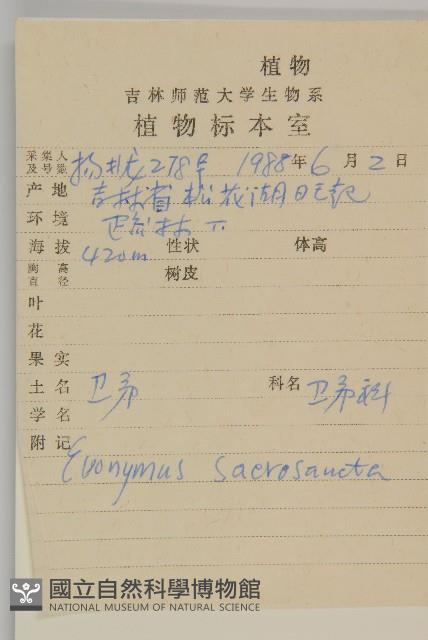 植物
吉林师范大学生物系
植物标本室
采集人及号数 杨 278号 1988年6月2日
产地 吉林省松花湖
环境 林下
海拔 420m 性状 体高
胸高直径 树皮
叶
花
果实
土名 卫矛 科名 卫矛科
学名
附记
Evonymus sacrosancta
國立自然科學博物館
NATIONAL MUSEUM OF NATURAL SCIENCE